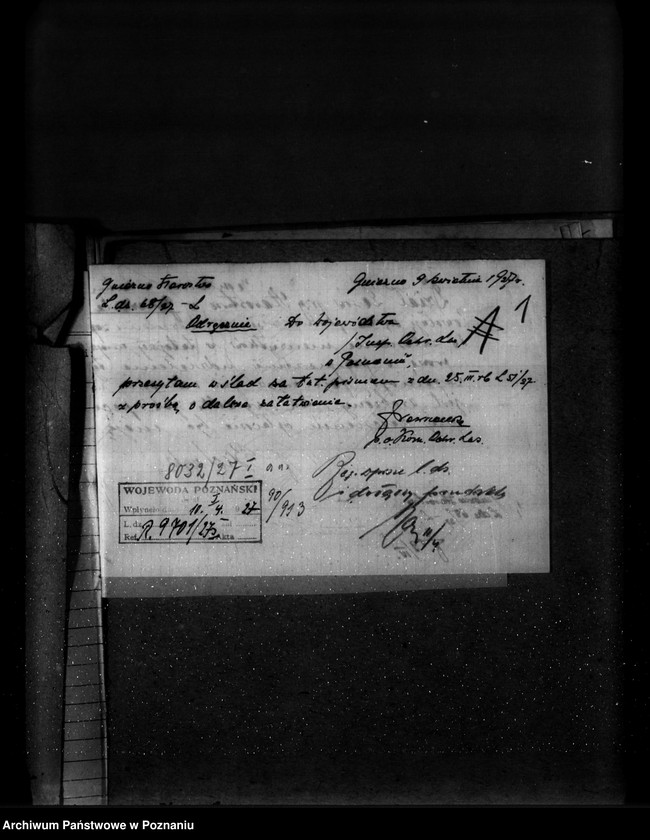 Gniezno Starostwo
Gniezno 9 kwietnia 1927 r.
L. dz. 68/27 – L
1
Odręcznie Do Województwa
/Insp. Ochr. Las./
w Poznaniu
przesyłam w ślad za tut. pismem z dn. 25.III. rb L 51/27
z prośbą o dalsze załatwienie.
p.o. Kom. Ochr. Las.
8032/27 I
90/913
WOJEWODA POZNAŃSKI
Wpłynęło 11. 4. 27
L. dz.
R. 9701/27
Ref. akta
11/4
Archiwum Państwowe w Poznaniu